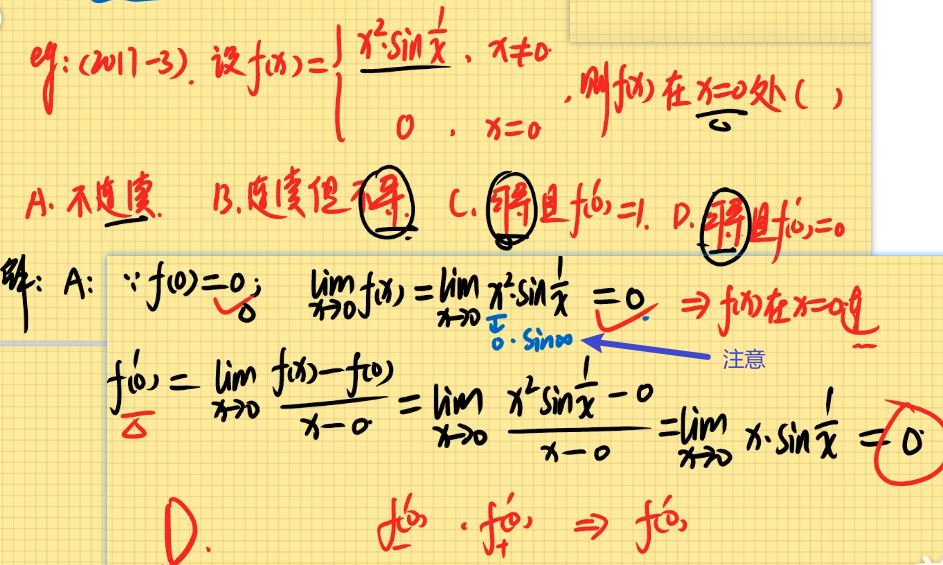 eg:(2017-3). 设f(x)={ x²·sin 1/x , x≠0
0 , x=0 , 则f(x)在x=0处( )
A. 不连续. B. 连续但不可导. C. 可导且f'(0)=1. D. 可导且f'(0)=0
解: A: ∵ f(0)=0; lim x→0 f(x) = lim x→0 x²·sin 1/x = 0. ⇒ f(x)在x=0处
0·sin∞
注意
f'(0) = lim x→0 (f(x)-f(0))/(x-0) = lim x→0 (x² sin 1/x - 0)/(x-0) = lim x→0 x·sin 1/x = 0
D. f'₋(0) , f'₊(0) ⇒ f'(0)